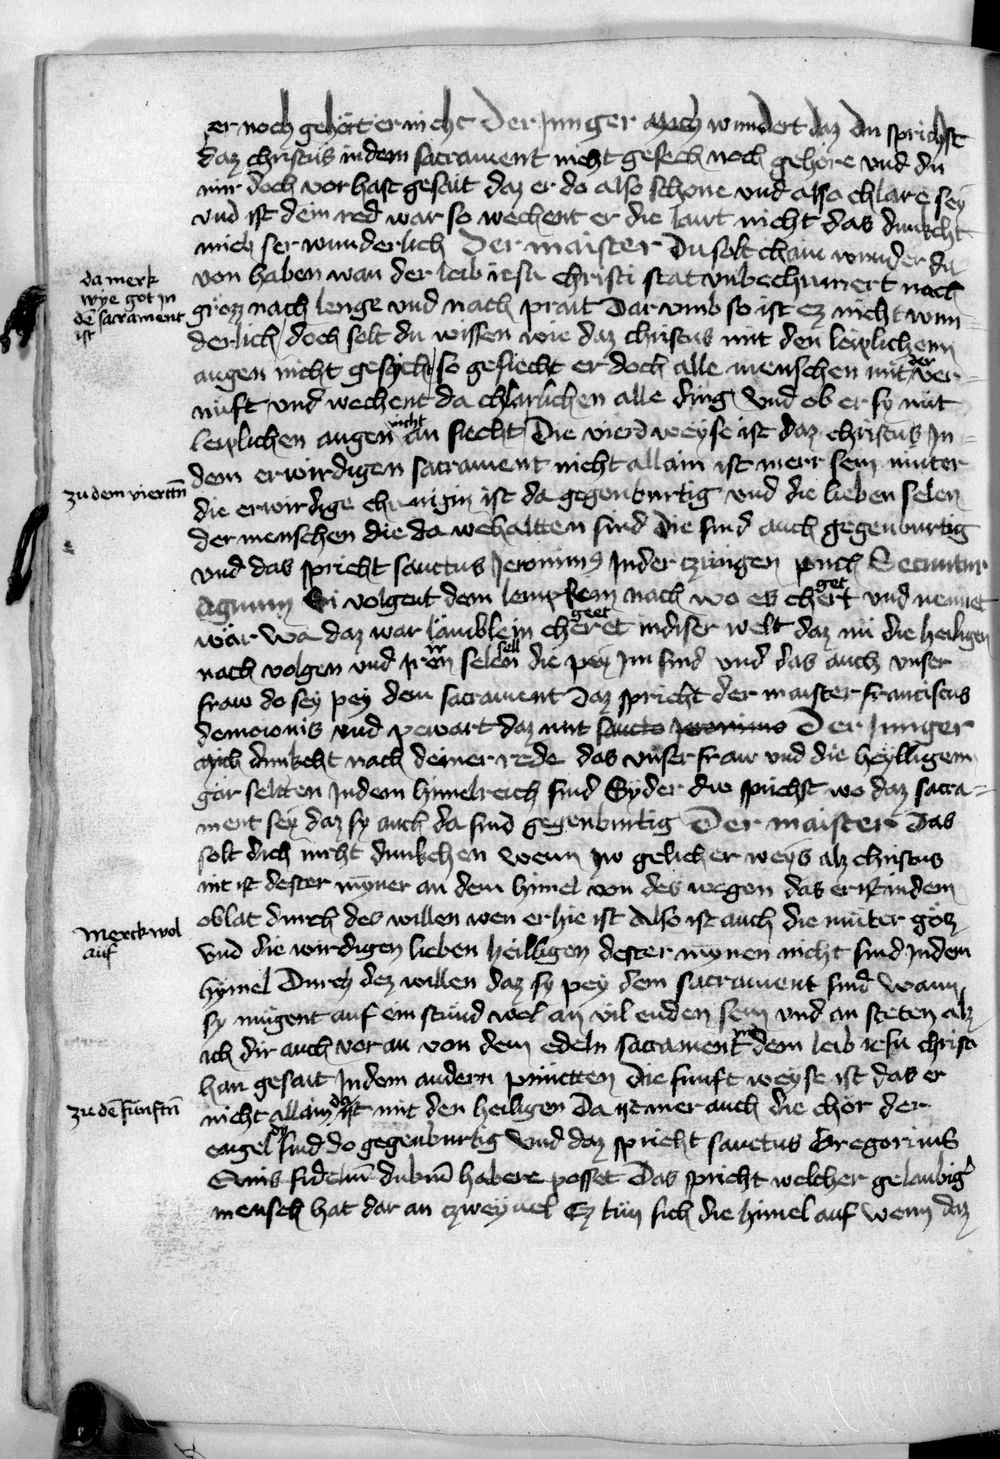 er noch gehört er nicht Der Junger mich wundert daz du sprichst
daz christus in dem sacrament nicht gesech noch gehöre vnd du
mir doch vor hast gesait daz er do also schone vnd also chlare sey
vnd ist dein red war so wechent er die laut nicht das dunkcht
mich ser wunderlich Der maister Du solt chain wunder da
von haben wan der leib iesu christi stat vnbechumert nach
da merk
wye got in
dē sacrament
ist
grözz nach lenge vnd nach prait Dar vmb so ist ez nicht wun-
derlich doch solt du wissen wie daz christus mit den leiplichenn
augen nicht gesycht so gesiecht er doch alle menschen mit der ver-
nuft vnd wechent da chlarlichen alle ding Vnd ob er sy mit
leiplichen augen nicht an siecht Die vierd weyse ist daz christus In-
dem erwirdigen sacrament nicht allain ist merr sein muter
zu dem viertn̄
die erwirdige chunigin ist da gegenburtig vnd die lieben selen
der menschen die da wehaltten sind Die sind auch gegenburtig
vnd das spricht sanctus Jeronimꝰ In der tzungen puch Secuntur
Agnum Si volgent dem lempkein nach wo es chert get vnd nennet
wär wa daz war lämblein cheret geet in diser welt daz im die heiligen
nach volgen vnd iren selen sell die pey im sind vnd das auch vnser
fraw do sey pey dem sacrament Daz spricht der maister franciscus
demoronis vnd pewart daz mit sancto Jeronimo Der Junger
mich dunkcht nach deiner rede das vnser fraw vnd die heylligem
gar seltten In dem himelreich sind Syder du sprichst wo daz sacra-
ment sey daz sy auch da sind gegenburtig Der maister Das
solt dich nicht dunkchen wenn In gelicher weys alz christus
nit ist dester myner an dem himel von des wegen das er ist in dem
oblat durch des willen wen er hie ist Also ist auch die müter götz
Merck wol
auf
vnd die wirdigen lieben heilligen dester mynen nicht sind In dem
hymel Durch dez willen daz sy pey dem sacrament sind Wann
sy mügent auf ein stund wol an vil enden sein vnd an steten alz
ich dir auch vor an von dem edeln sacrament vnd dem leib iesu christi
han gesait In dem andern punctten Die funft weyse ist das er
zu dē funftn̄
nicht allain do ist mit den heiligen Da ist mer auch die chör der
engel dy sind do gegenburtig Vnd daz spricht sanctus Gregorius
Quis fideliū dubiū habere posset Das spricht welcher gelaubig
mensch hat dar an czweyuel Ez tün sich die himel auf wenn daz